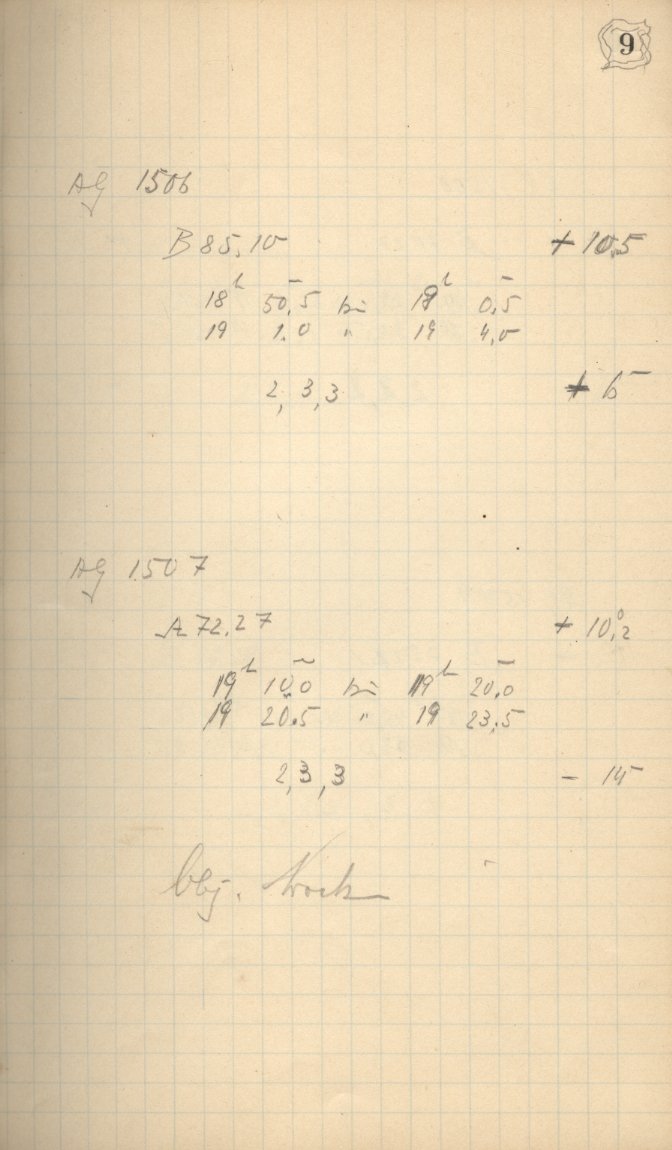 9
AG 1506
B 85,10 + 10.5
18h 50,5 bis 19h 0,5
19 1.0 " 19 4,0
2, 3, 3 + 5
AG 1507
A 72.27 + 10°,2
19h 10,0 bis 19h 20,0
19 20.5 " 19 23,5
2, 3, 3 - 15
Obj.